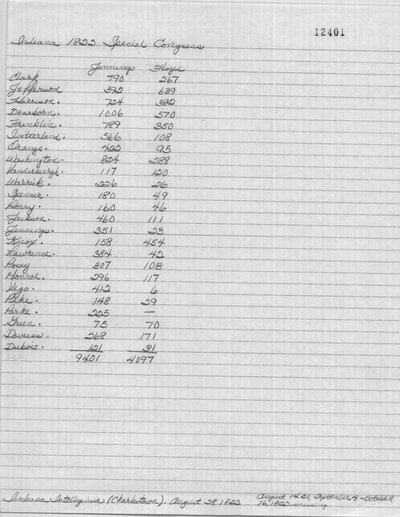 12401
Indiana 1822 Special Congress
Jennings Floyd
Clark 790 267
Jefferson 392 639
Harrison. 724 382
Dearborn. 1006 570
Franklin. 789 350
Switherland. 566 108
Orange. 422 95
Washington. 824 288
Vanderburgh. 117 120
Warrick. 226 26
Spencer. 180 49
Perry. 160 46
Jackson. 460 111
Jennings. 351 23
Knox. 158 454
Lawrence. 384 42
Posey 307 103
Monroe. 296 117
Vigo. 412 6
Pike. 148 29
Parke. 225 —
Green. 75 70
Daviess. 268 171
Dubois. 121 31
9401 4097
Indiana Intelligencer (Charlestown). August 28, 1822
August 14, 21, September 4 - October
16, 1822 missing